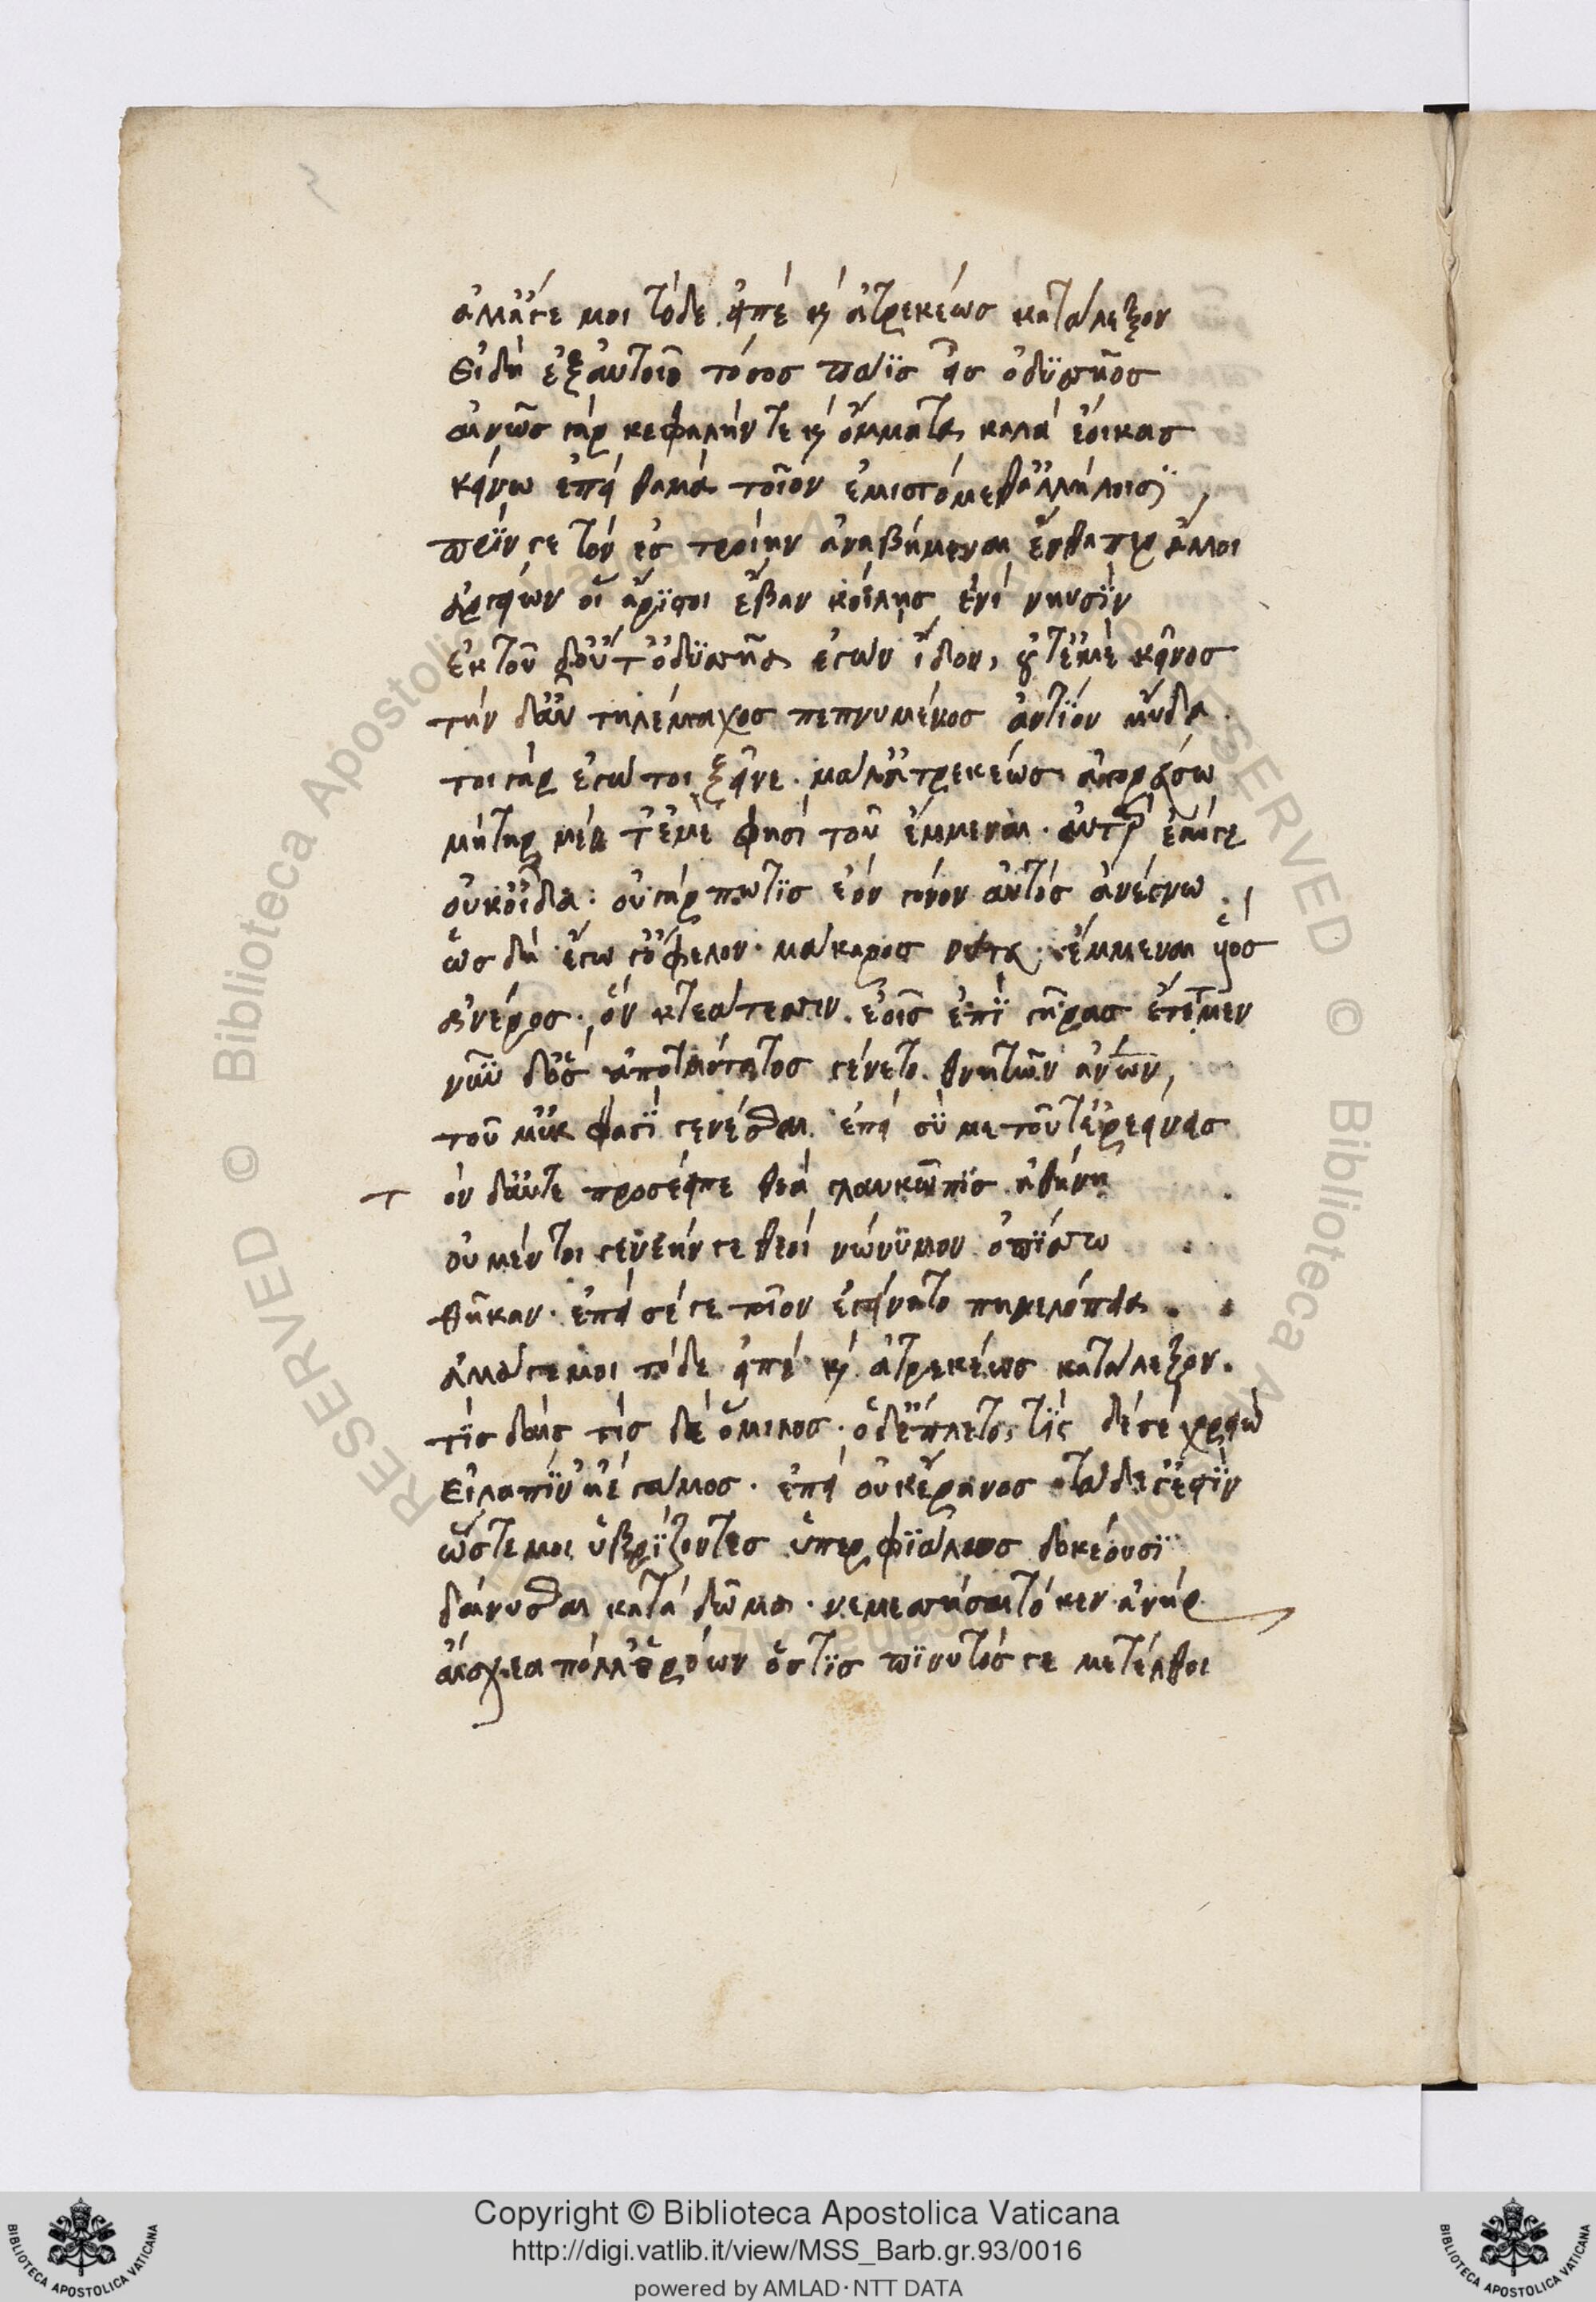 ἀλλ' ἄγε μοι τόδε εἰπὲ κ' ἀτρεκέως κατάλεξον
εἰ δὴ ἐξ αὐτοῖο τόσος πάϊς εἰς ὀδϋσσῆος
αἰνῶς γὰρ κεφαλήν τε κ' ὄμματα καλὰ ἔοικας
κείνω ἐπεὶ θαμὰ τοῖον ἐμισγόμεθ' ἀλλήλοισϊ,
πρίν γε τὸν ἐς τροίην ἀναβήμεναι ἔνθα περ ἄλλοι
ἀργείων οἳ ἄριστοι ἔβαν κοίλῃς ἐνὶ νηυσϊν
ἐκ τοῦ δ' οὔτ' ὀδϋσσῆα ἐγὼν ἴδον, οὔτ' ἐμὲ κεῖνος
τὴν δ' αὖ τηλέμαχος πεπνυμένος ἀντίον ηὔδα.
τοι γὰρ ἐγώ τοι ξεῖνε. μάλ' ἀτρεκέως ἀγορεύσω
μήτηρ μέν τ' ἐμέ φησι τοῦ ἔμμεναι. αὐτὰρ ἔγωγε
οὐκ οἶδα: οὐ γάρ πω τις ἑὸν γόνον αὐτὸς ἀνέγνω.
ὡς δὴ ἔγωγ' ὄφελον. μάκαρός νύ τευ. ἔμμεναι υἱός
ἀνέρος. ὃν κτεάτεσσιν. ἑοῖς ἔπι γῆρας ἔτετμεν
νῦν δ' ὃς ἀποτμότατος γένετο. θνητῶν ἀνων,
τοῦ μ' ἔκ φασϊ γενέσθαι. ἐπεὶ σύ με τοῦτ' ἐρεείνεις
τ ὸν δ' αὖτε προσέειπε θεὰ γλαυκῶπις ἀθήνη
οὐ μέν τοι γενεήν γε θεοὶ νώνϋμον ὀπίσσω
θῆκαν. ἐπεὶ σέ γε τοῖον ἐγείνατο πηνελόπεια.
ἀλλ' ἄγε μοι τόδε εἰπὲ κ' ἀτρεκέως κατάλεξον.
τὶς δαὶς τὶς δὲ ὅμιλος. ὅδ' ἔπλετο, τίς δέ σε χρεὼ
εἰλαπίν' ἠὲ γάμος. ἐπεὶ οὐκ ἔρανος τάδε γ' ἐστϊν
ὥς τέ μοι ὑβρίζοντες ὑπερφιάλως δοκέουσϊ
δαίνυσθαι κατὰ δῶμα. νεμεσσήσαιτό κεν ἀνήρ
αἴσχεα πόλλ' ὁρόων ὅστις πινυτός γε μετέλθοι
Copyright © Biblioteca Apostolica Vaticana
http://digi.vatlib.it/view/MSS_Barb.gr.93/0016
powered by AMLAD·NTT DATA